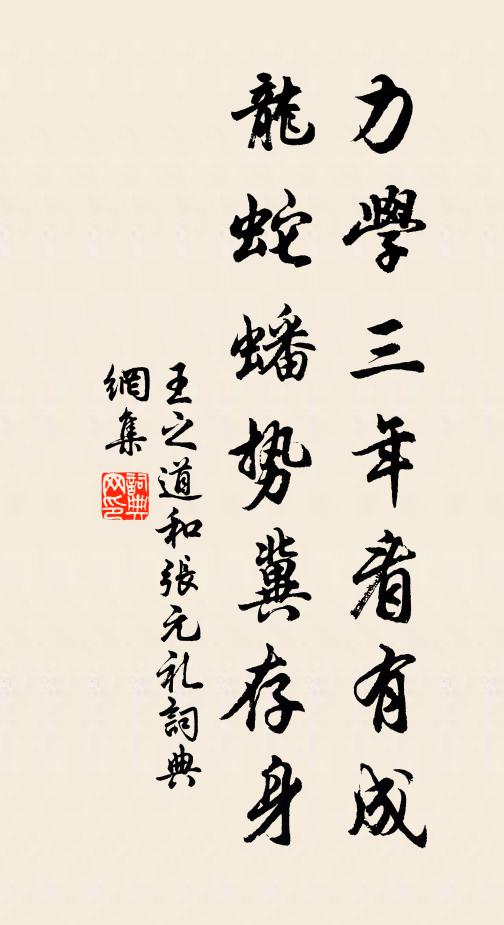 力學三年看有成
龍蛇蟠势冀存身
王之道和張元礼詞典
網集
詞典
网印